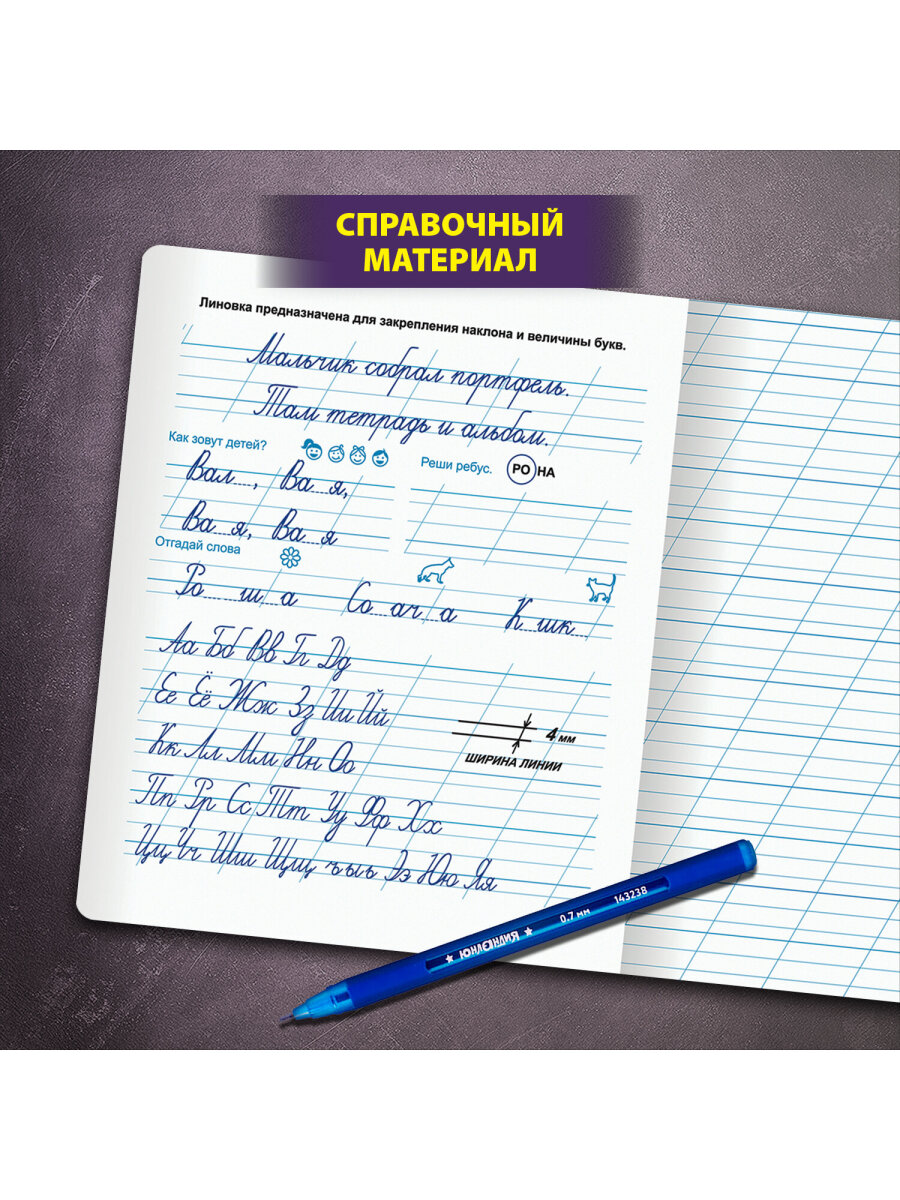 СПРАВОЧНЫЙ
МАТЕРИАЛ
Линовка предназначена для закрепления наклона и величины букв.
Мальчик собрал портфель.
Там тетрадь и альбом.
Как зовут детей?
Вал__, Ва__я,
Ва__я, Ва__я
Реши ребус.
РО НА
Отгадай слова
Ро__ш_а Со__ач_а К_шк__
Аа Бб Вв Гг Дд
Ее Ёё Жж Зз Ии Йй
Кк Лл Мм Нн Оо
Пп Рр Сс Тт Уу Фф Хх
Цц Чч Шш Щщ ъыь Ээ Юю Яя
4 мм
ШИРИНА ЛИНИИ
ЮНЛАНДИЯ 0.7 мм 143238